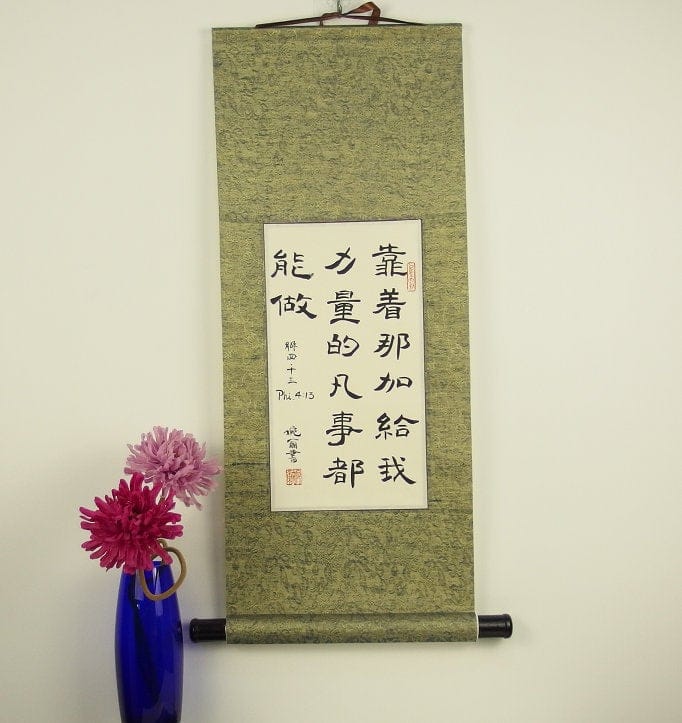 靠着那加給我
力量的凡事都
能做
腓四·十三
Phi. 4:13